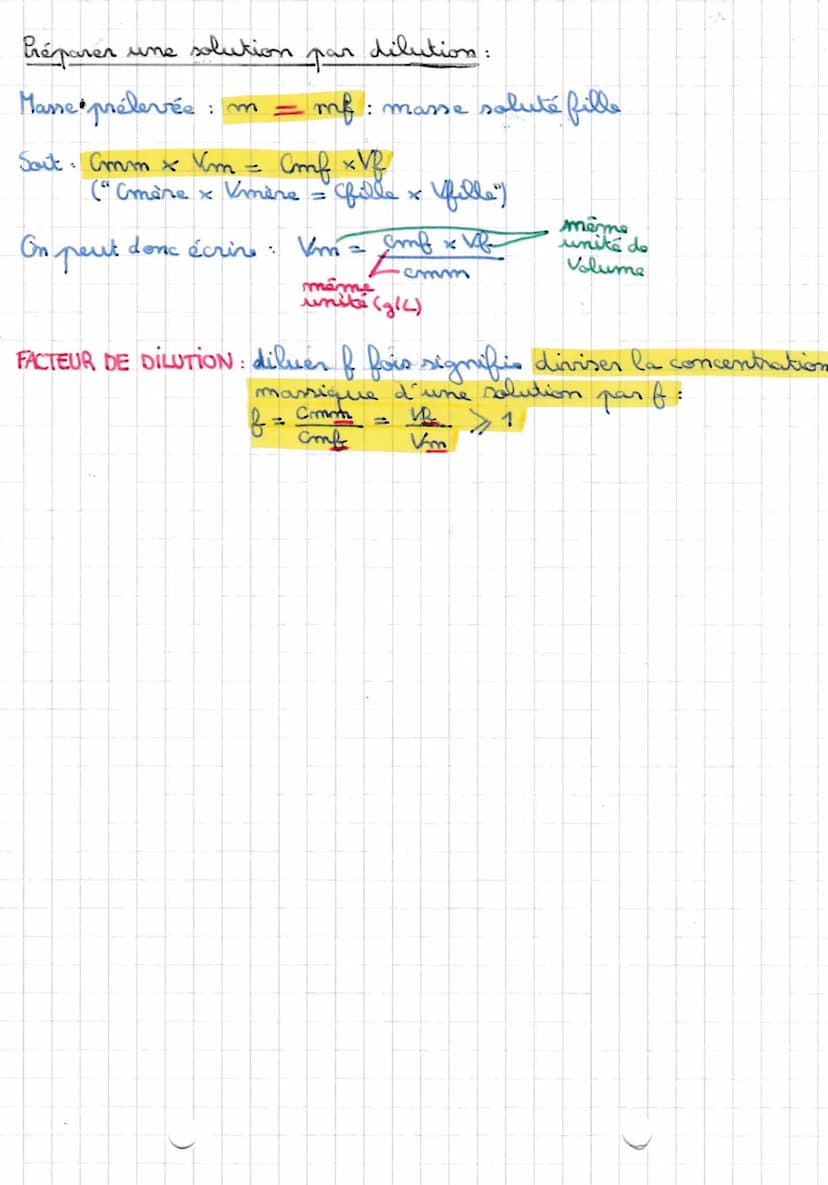 Préparer une solution par dilution :
Masse prélevée : m = mf : masse soluté fille
Soit : Cmm x Vm = Cmf x Vf
("Cmère x Vmère = Cfille x Vfille")
On peut donc écrire : Vm = Cmf x Vf
cmm
même
unité de
Volume
même
unité (g/L)
FACTEUR DE DILUTION : diluer f fois signifie diviser la concentration
massique d'une solution par f :
f = Cmm / Cmf = Vf / Vm ⩾ 1